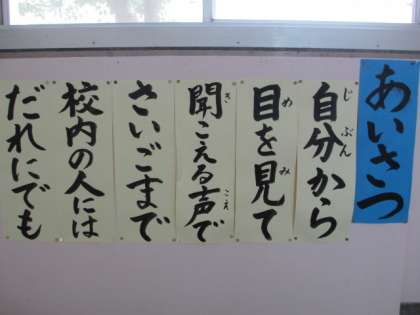 あいさつ
自分から
目を見て
聞こえる声で
さいごまで
校内の人には
だれにでも